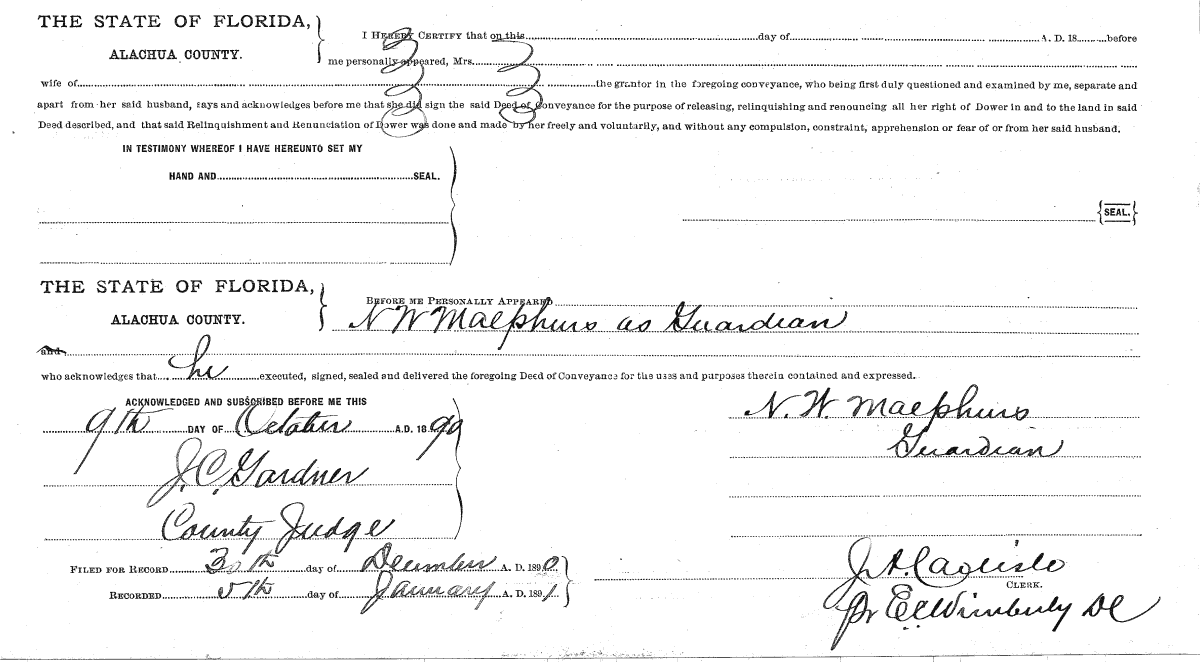 THE STATE OF FLORIDA,
ALACHUA COUNTY.
I HEREBY CERTIFY that on this day of A. D. 18 before
me personally appeared, Mrs.
wife of the grantor in the foregoing conveyance, who being first duly questioned and examined by me, separate and
apart from her said husband, says and acknowledges before me that she did sign the said Deed of Conveyance for the purpose of releasing, relinquishing and renouncing all her right of Dower in and to the land in said
Deed described, and that said Relinquishment and Renunciation of Dower was done and made by her freely and voluntarily, and without any compulsion, constraint, apprehension or fear of or from her said husband.
IN TESTIMONY WHEREOF I HAVE HEREUNTO SET MY
HAND AND SEAL.
SEAL.
THE STATE OF FLORIDA,
ALACHUA COUNTY.
BEFORE ME PERSONALLY APPEARED
N W Maephurs as Guardian
and
who acknowledges that he executed, signed, sealed and delivered the foregoing Deed of Conveyance for the uses and purposes therein contained and expressed.
ACKNOWLEDGED AND SUBSCRIBED BEFORE ME THIS
9th DAY OF October A.D. 1890
J.C. Gardner
County Judge
N. W. Maephurs
Guardian
FILED FOR RECORD 30th day of December A. D. 1890
RECORDED 5th day of January A. D. 1891
CLERK.
Pr E C Wimberly DC